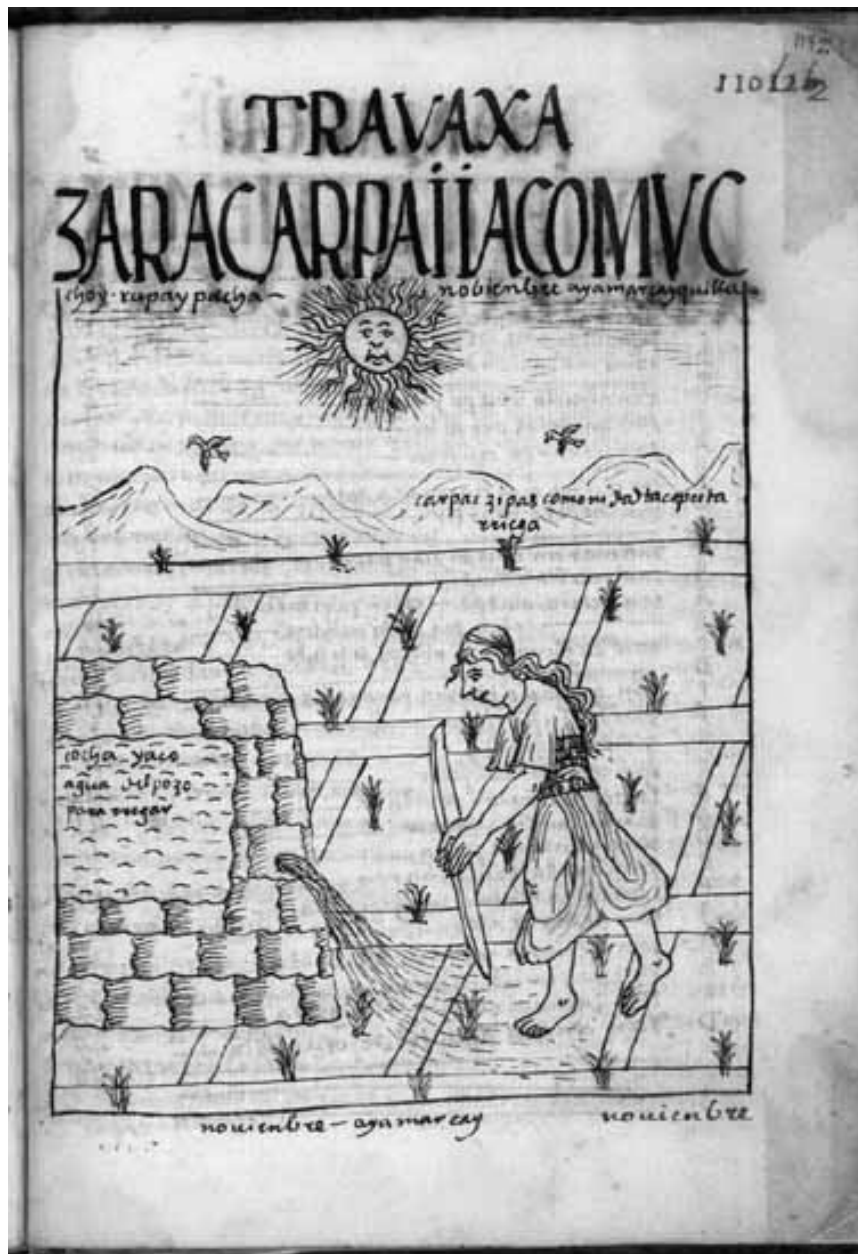 TRAVAXA
ZARACARPAIIACOMVC
choy·rupay pacha – nobienbre ayamarcayquilla
carpac zipas comonidad sacapista
rriega
cocha yaco
agua del pozo
para rregar
nouienbre – ayamarcay nouienbre